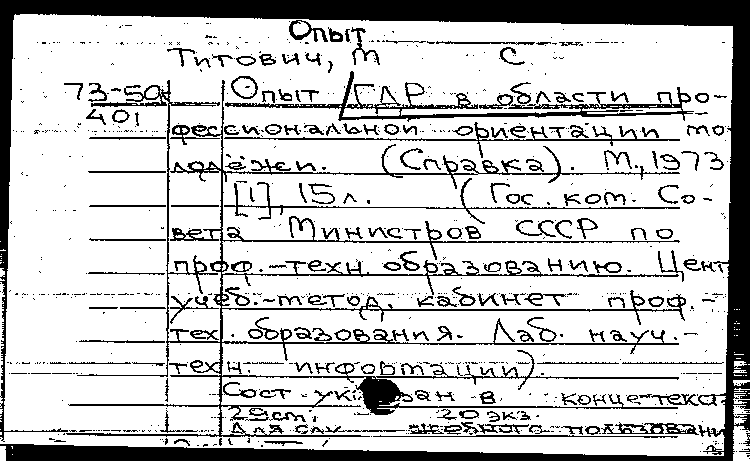 Опыт
Титович, М С
73-50к Опыт ГДР в области про-
401
фессиональной ориентации мо-
лодёжи. (Справка). М., 1973
[1], 15 л. (Гос. ком. Со-
вета Министров СССР по
проф.-техн. образованию. Цент
учеб.-метод. кабинет проф.-
тех. образования. Лаб. науч.-
техн. информации).
Сост. ук ан в конце текста
20 экз.
Для слу жебного пользовани